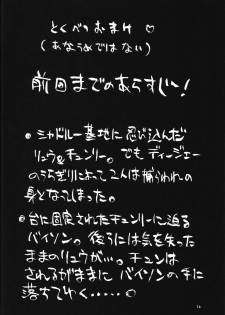 とくべつおまけ♡
(あなうめではない)
前回までのあらすじ〜!
●シャドルー基地に忍び込んだ
リュウ&チュンリー。でもディージェー
のうらぎりによって2人は捕らわれの
身となってしまった。
●台に固定されたチュンリーに迫る
バイソン。後ろには気を失った
ままのリュウが…。チュンは
されるがままにバイソンの手に
落ちてゆく・・・・・。